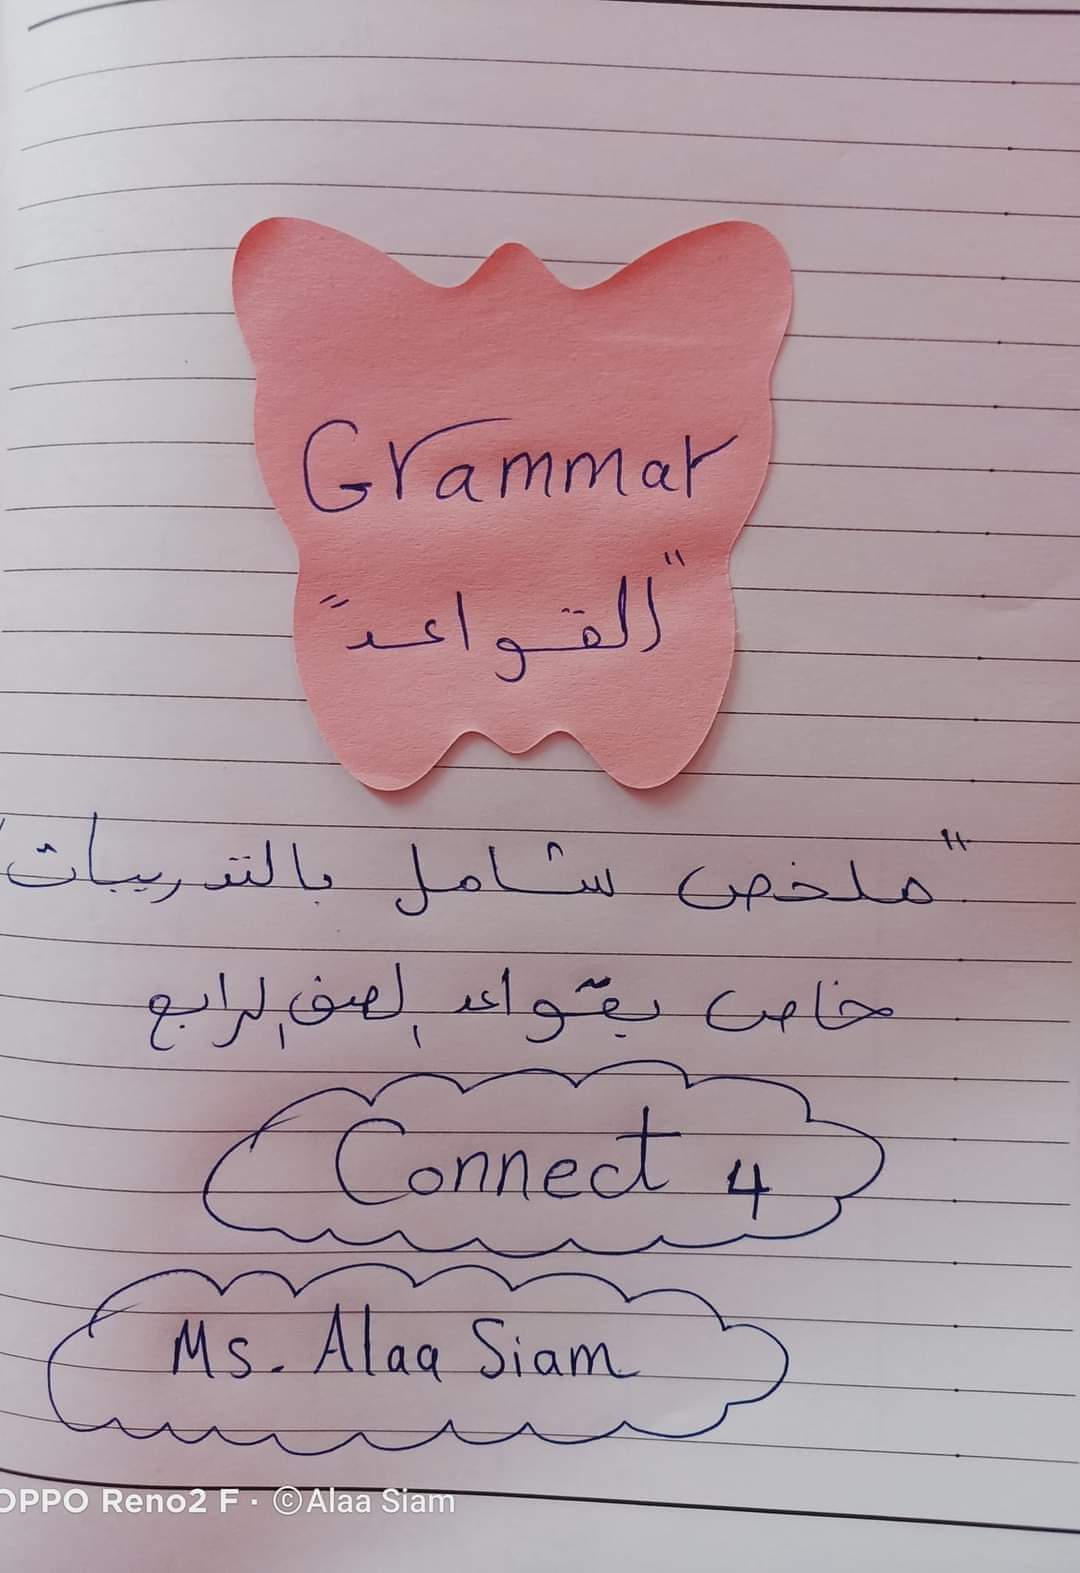 Grammar
"القواعد"
"ملخص شامل بالتدريبات"
خاص بقواعد الصف الرابع
Connect 4
Ms. Alaa Siam
OPPO Reno2 F · ©Alaa Siam